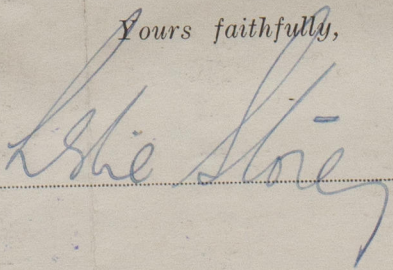 Yours faithfully,
Leslie Storey